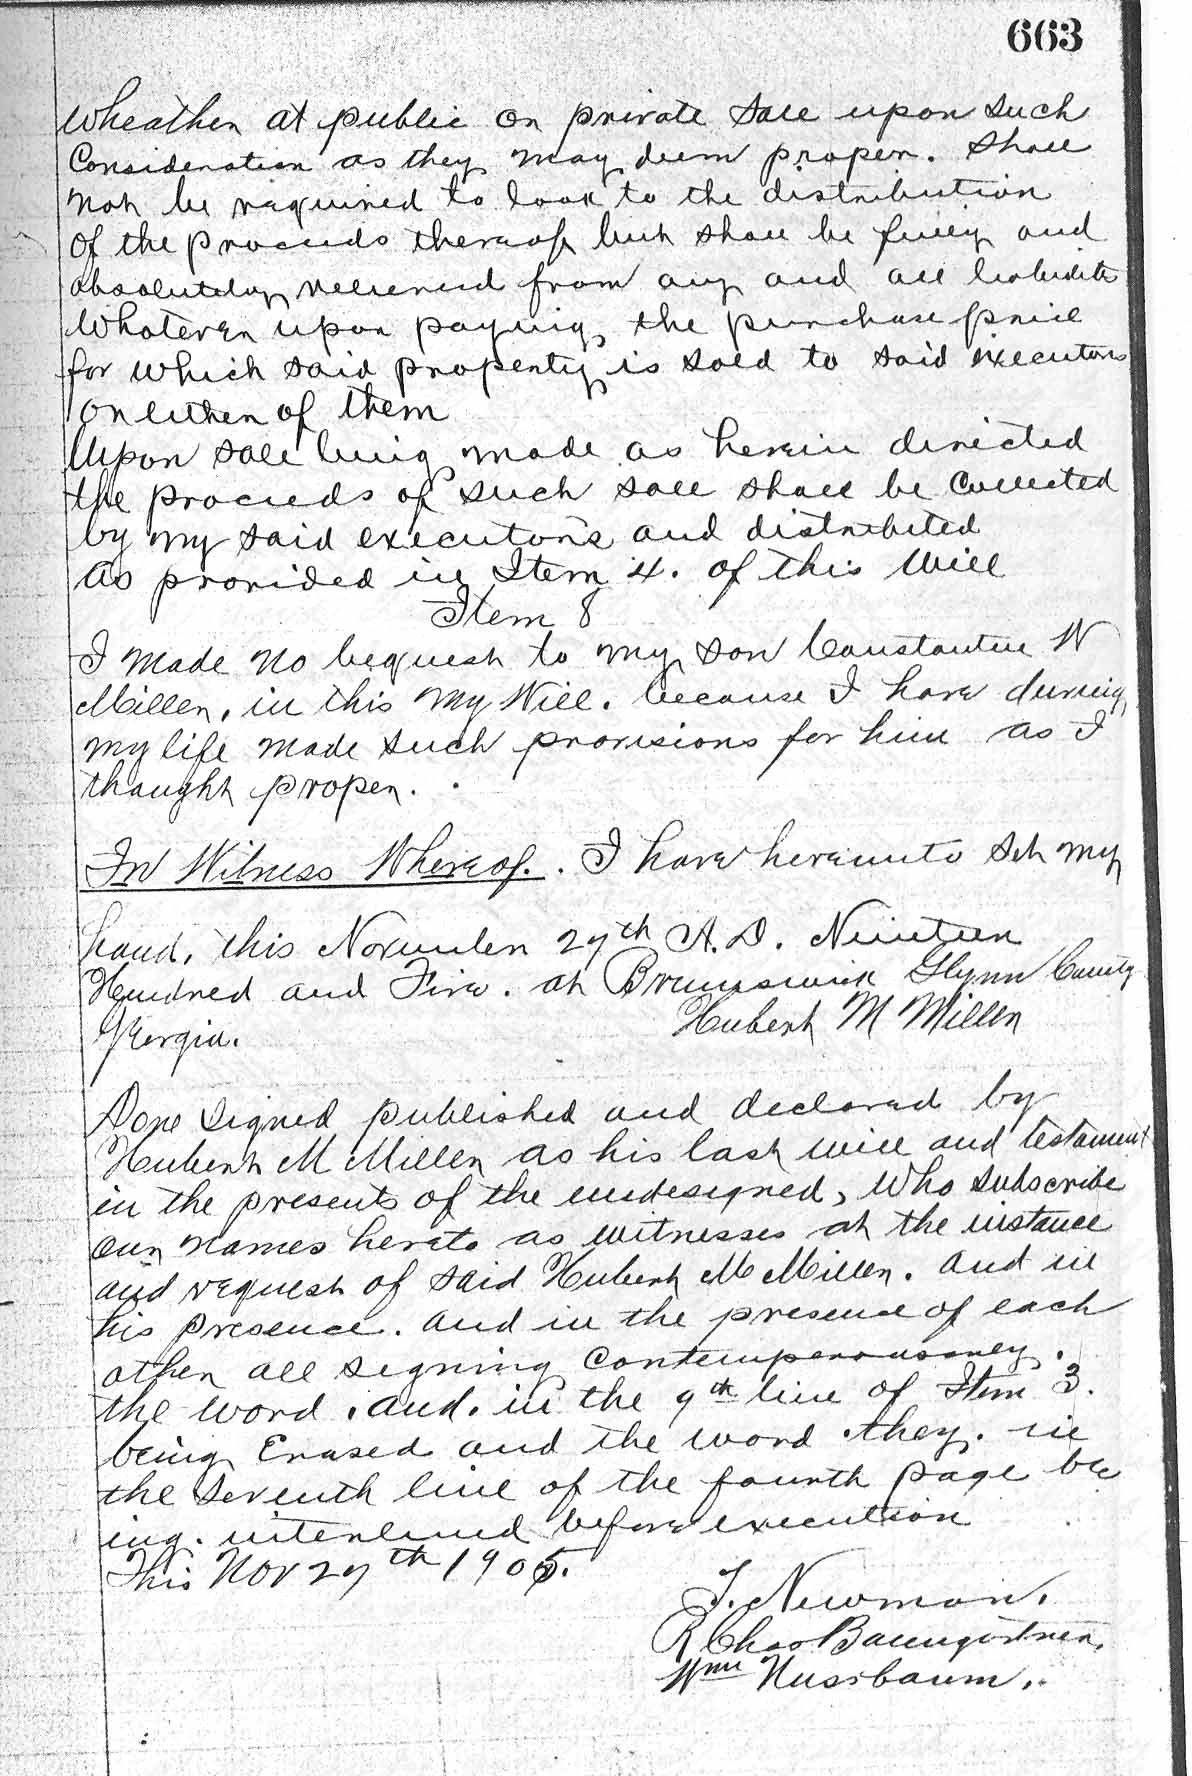 663
Wheather at public or private Sale upon such
Consideration as they may deem proper. Shall
not be required to look to the distribution
of the proceeds thereof but shall be fully and
absolutely relieved from any and all
Whatever upon paying the purchase price
for which said property is sold to said executors
or either of them
Upon sale being made as herein directed
the proceeds of such sale shall be Collected
by my said executors and distributed
as provided in Item 4. of this Will
Item 8
I made no bequest to my son Constantine W
Miller, in this my Will. because I have during
my life made such provisions for him as I
thought proper.
In Witness Whereof. I have hereunto Set my
hand, this November 27th A.D. Nineteen
Hundred and Five. at Brunswick Glynn County
Georgia. Hubert M Miller
Done Signed published and declared by
Hubert M Miller as his last will and testament
in the presents of the undesigned, Who subscribe
our names hereto as witnesses at the instance
and request of said Hubert M Miller. and in
his presence. and in the presence of each
other all signing
the word. and. in the 9th line of Item 3.
being Erased and the word they. in
the seventh line of the fourth page be
ing. interlined before execution
This Nov 27th 1905.
J. Newman.
R Chas Baumgartner.
Wm Nussbaum.